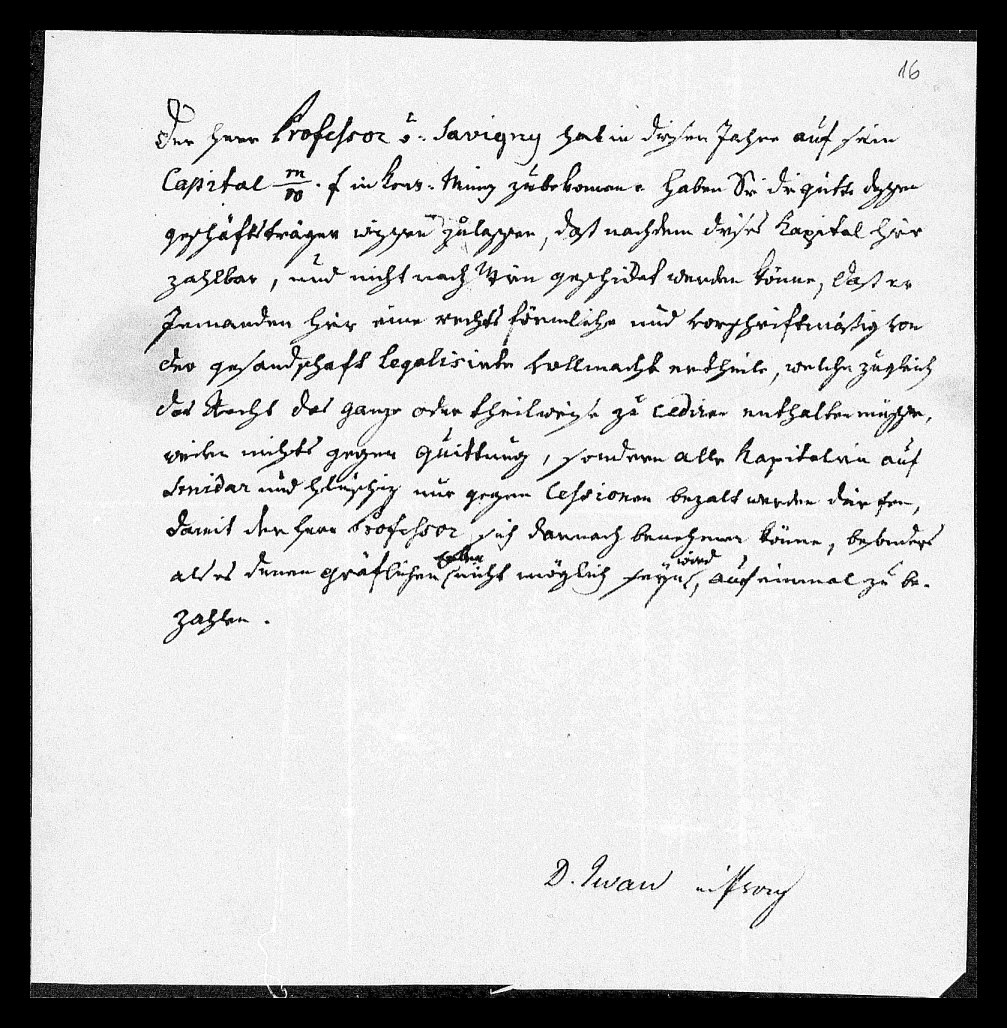 16
Der Herr Professor v. Savigny hat in diesem Jahre auf sein
Capital m/10 f in Conv. Münz zu bekomen. Haben Sie die güte dessen
geschäftsträger wissen zulassen, daß nachdem dises Kapital hier
zahlbar, und nicht nach Wien geschicket werden könne, daß er
Jemanden hier eine rechts förmliche und vorschriftmäsig von
der gesandschaft legalisirte vollmacht ertheile, welche zugleich
das Recht das ganze oder theilweise zu cediren enthalten müsse,
weilen nichts gegen Quittung, sondern alle Kapitalien auf
und nur gegen Cessionen bezalt werden dürfen,
damit der Herr Professor sich darnach benehmen könne, besonders
als es denen gräflichen Erben nicht möglich seyn wird, auf einmal zu be-
zahlen.
D. Twan in Prag